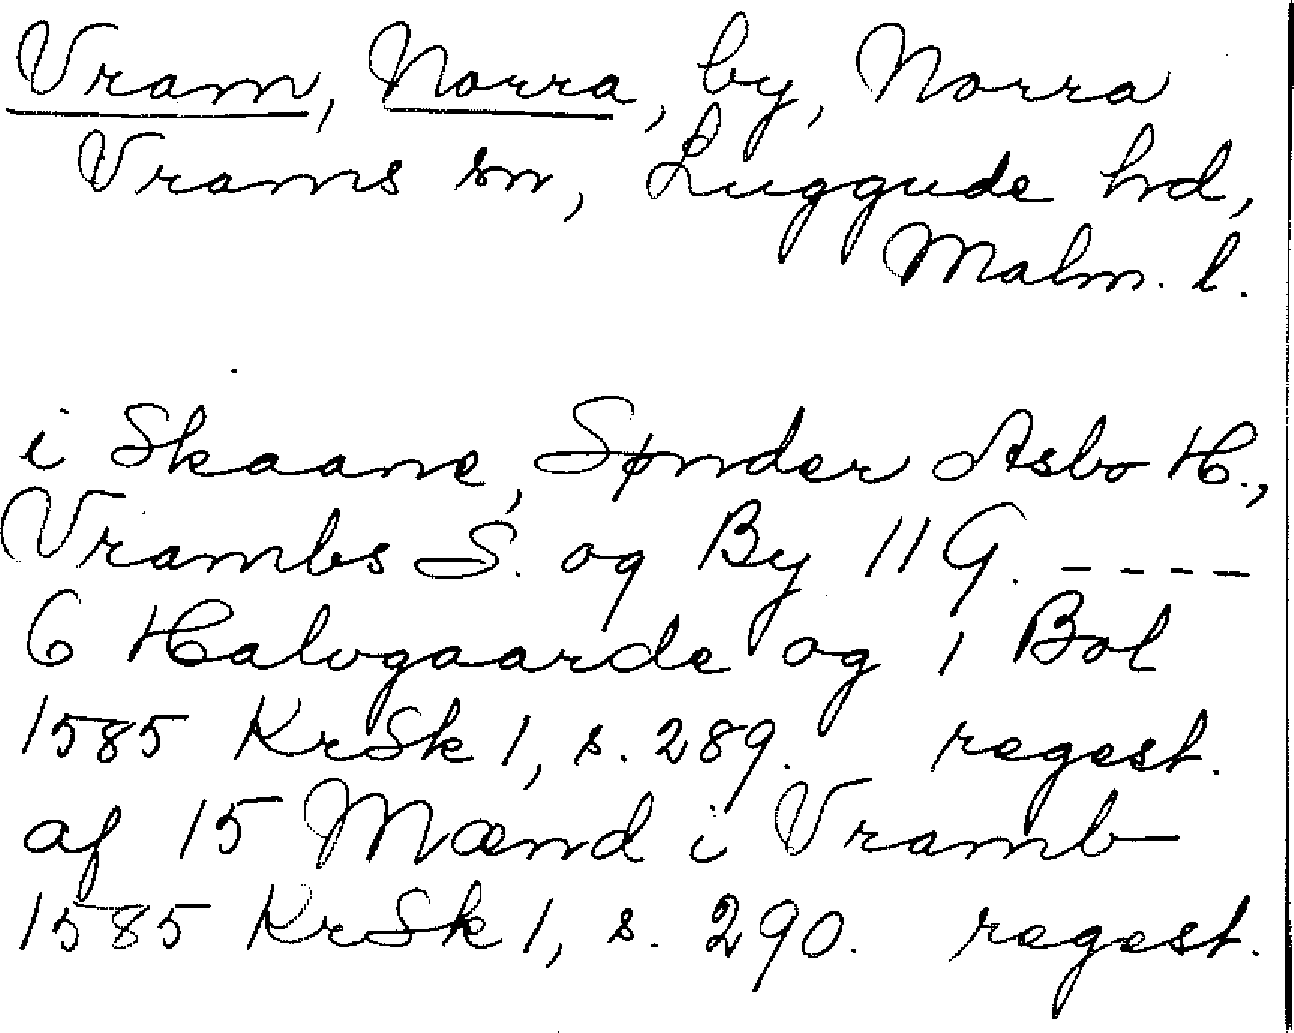 Vram, Norra, by, Norra
Vrams sn, Luggude hd,
Malm. l.
i Skaane, Sønder Asbo H.,
Vrambs S. og By 11 G. ----
6 Halvgaarde og 1 Bol
1585 KrSk 1, s. 289. regest.
af 15 Mænd i Vramb
1585 KrSk 1, s. 290. regest.